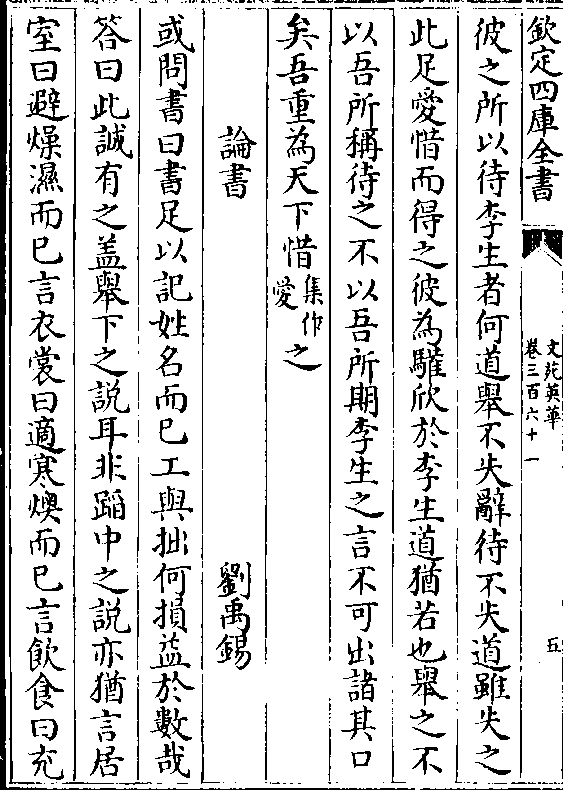 欽定四庫全書
文苑英華
卷三百六十一
五
彼之所以待李生者何道舉不失辭待不失道雖失之
此足愛惜而得之彼為驩欣於李生道猶若也舉之不
以吾所稱待之不以吾所期李生之言不可出諸其口
矣吾重為天下惜集作愛之
論書 劉禹錫
或問書曰書足以記姓名而已工與拙何損益於數哉
答曰此誠有之盖舉下之說耳非蹈中之說亦猶言居
室曰避燥濕而已言衣裳曰適寒燠而已言飲食曰充